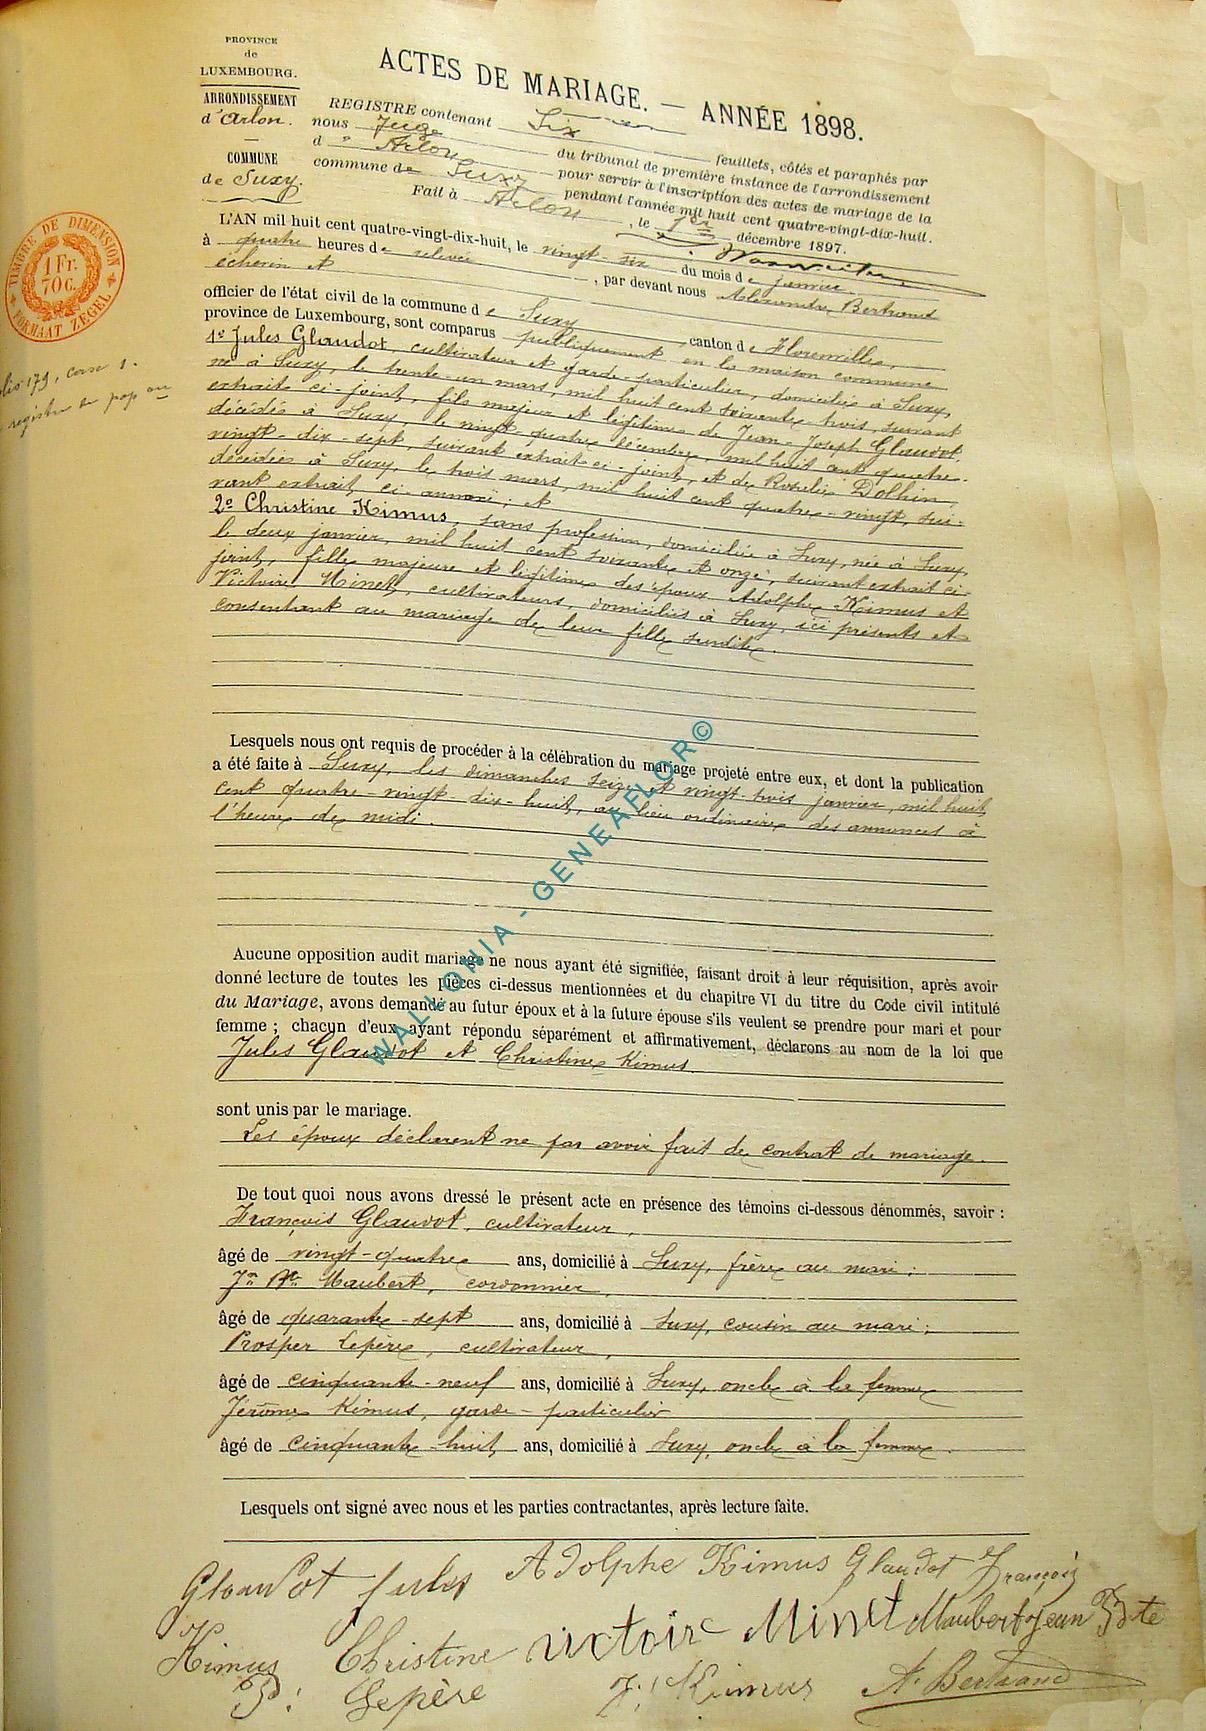 PROVINCE
de
LUXEMBOURG.
ARRONDISSEMENT
d'Arlon.
COMMUNE
de Suxy.
TIMBRE DE DIMENSION
1 Fr.
70 C.
FORMAAT ZEGEL
ACTES DE MARIAGE. — ANNÉE 1898.
REGISTRE contenant Six feuillets, côtés et paraphés par
nous Juge du tribunal de première instance de l'arrondissement
d' Arlon pour servir à l'inscription des actes de mariage de la
commune de Suxy pendant l'année mil huit cent quatre-vingt-dix-huit.
Fait à Arlon, le 1er décembre 1897.
L'AN mil huit cent quatre-vingt-dix-huit, le vingt-six du mois de janvier
à quatre heures de relevée, par devant nous Alexandre Bertrand
échevin et
officier de l'état civil de la commune de Suxy canton de Florenville,
province de Luxembourg, sont comparus publiquement en la maison commune
1° Jules Glaudot, cultivateur et garde-particulier, domicilié à Suxy,
né à Suxy, le trente-un mars, mil huit cent soixante-trois, suivant
extrait ci-joint, fils majeur et légitime de Jean-Joseph Glaudot,
décédé à Suxy, le vingt-quatre décembre, mil huit cent quatre-
vingt-dix-sept, suivant extrait ci-joint, et de Rosalie Dolhin,
décédée à Suxy, le trois mars, mil huit cent quatre-vingt, sui-
vant extrait, ci-annexé; et
2° Christine Kimus, sans profession, domiciliée à Suxy, née à Suxy,
le deux janvier, mil huit cent soixante et onze, suivant extrait ci-
joint, fille majeure et légitime des époux Adolphe Kimus et
Victoire Minet, cultivateurs, domiciliés à Suxy, ici présents et
consentant au mariage de leur fille susdite.
folio 179, case 1.
registre de pop on
Lesquels nous ont requis de procéder à la célébration du mariage projeté entre eux, et dont la publication
a été faite à Suxy, les dimanches seize et vingt-trois janvier, mil huit
cent quatre-vingt-dix-huit, au lieu ordinaire des annonces à
l'heure de midi.
Aucune opposition audit mariage ne nous ayant été signifiée, faisant droit à leur réquisition, après avoir
donné lecture de toutes les pièces ci-dessus mentionnées et du chapitre VI du titre du Code civil intitulé
du Mariage, avons demandé au futur époux et à la future épouse s'ils veulent se prendre pour mari et pour
femme ; chacun d'eux ayant répondu séparément et affirmativement, déclarons au nom de la loi que
Jules Glaudot et Christine Kimus
sont unis par le mariage.
Les époux déclarent ne pas avoir fait de contrat de mariage.
De tout quoi nous avons dressé le présent acte en présence des témoins ci-dessous dénommés, savoir :
François Glaudot, cultivateur,
âgé de vingt-quatre ans, domicilié à Suxy, frère au mari ;
Jn Bte Maubert, cordonnier,
âgé de quarante-sept ans, domicilié à Suxy, cousin au mari ;
Prosper Lepère, cultivateur,
âgé de cinquante-neuf ans, domicilié à Suxy, oncle à la femme
Jérôme Kimus, garde-particulier
âgé de cinquante-huit ans, domicilié à Suxy, oncle à la femme.
Lesquels ont signé avec nous et les parties contractantes, après lecture faite.
Glaudot Jules Adolphe Kimus Glaudot François
Kimus Christine victoire Minet Maubert Jean Bte
P: Lepère J: Kimus A. Bertrand
WALLONIA - GENEAFLOR©